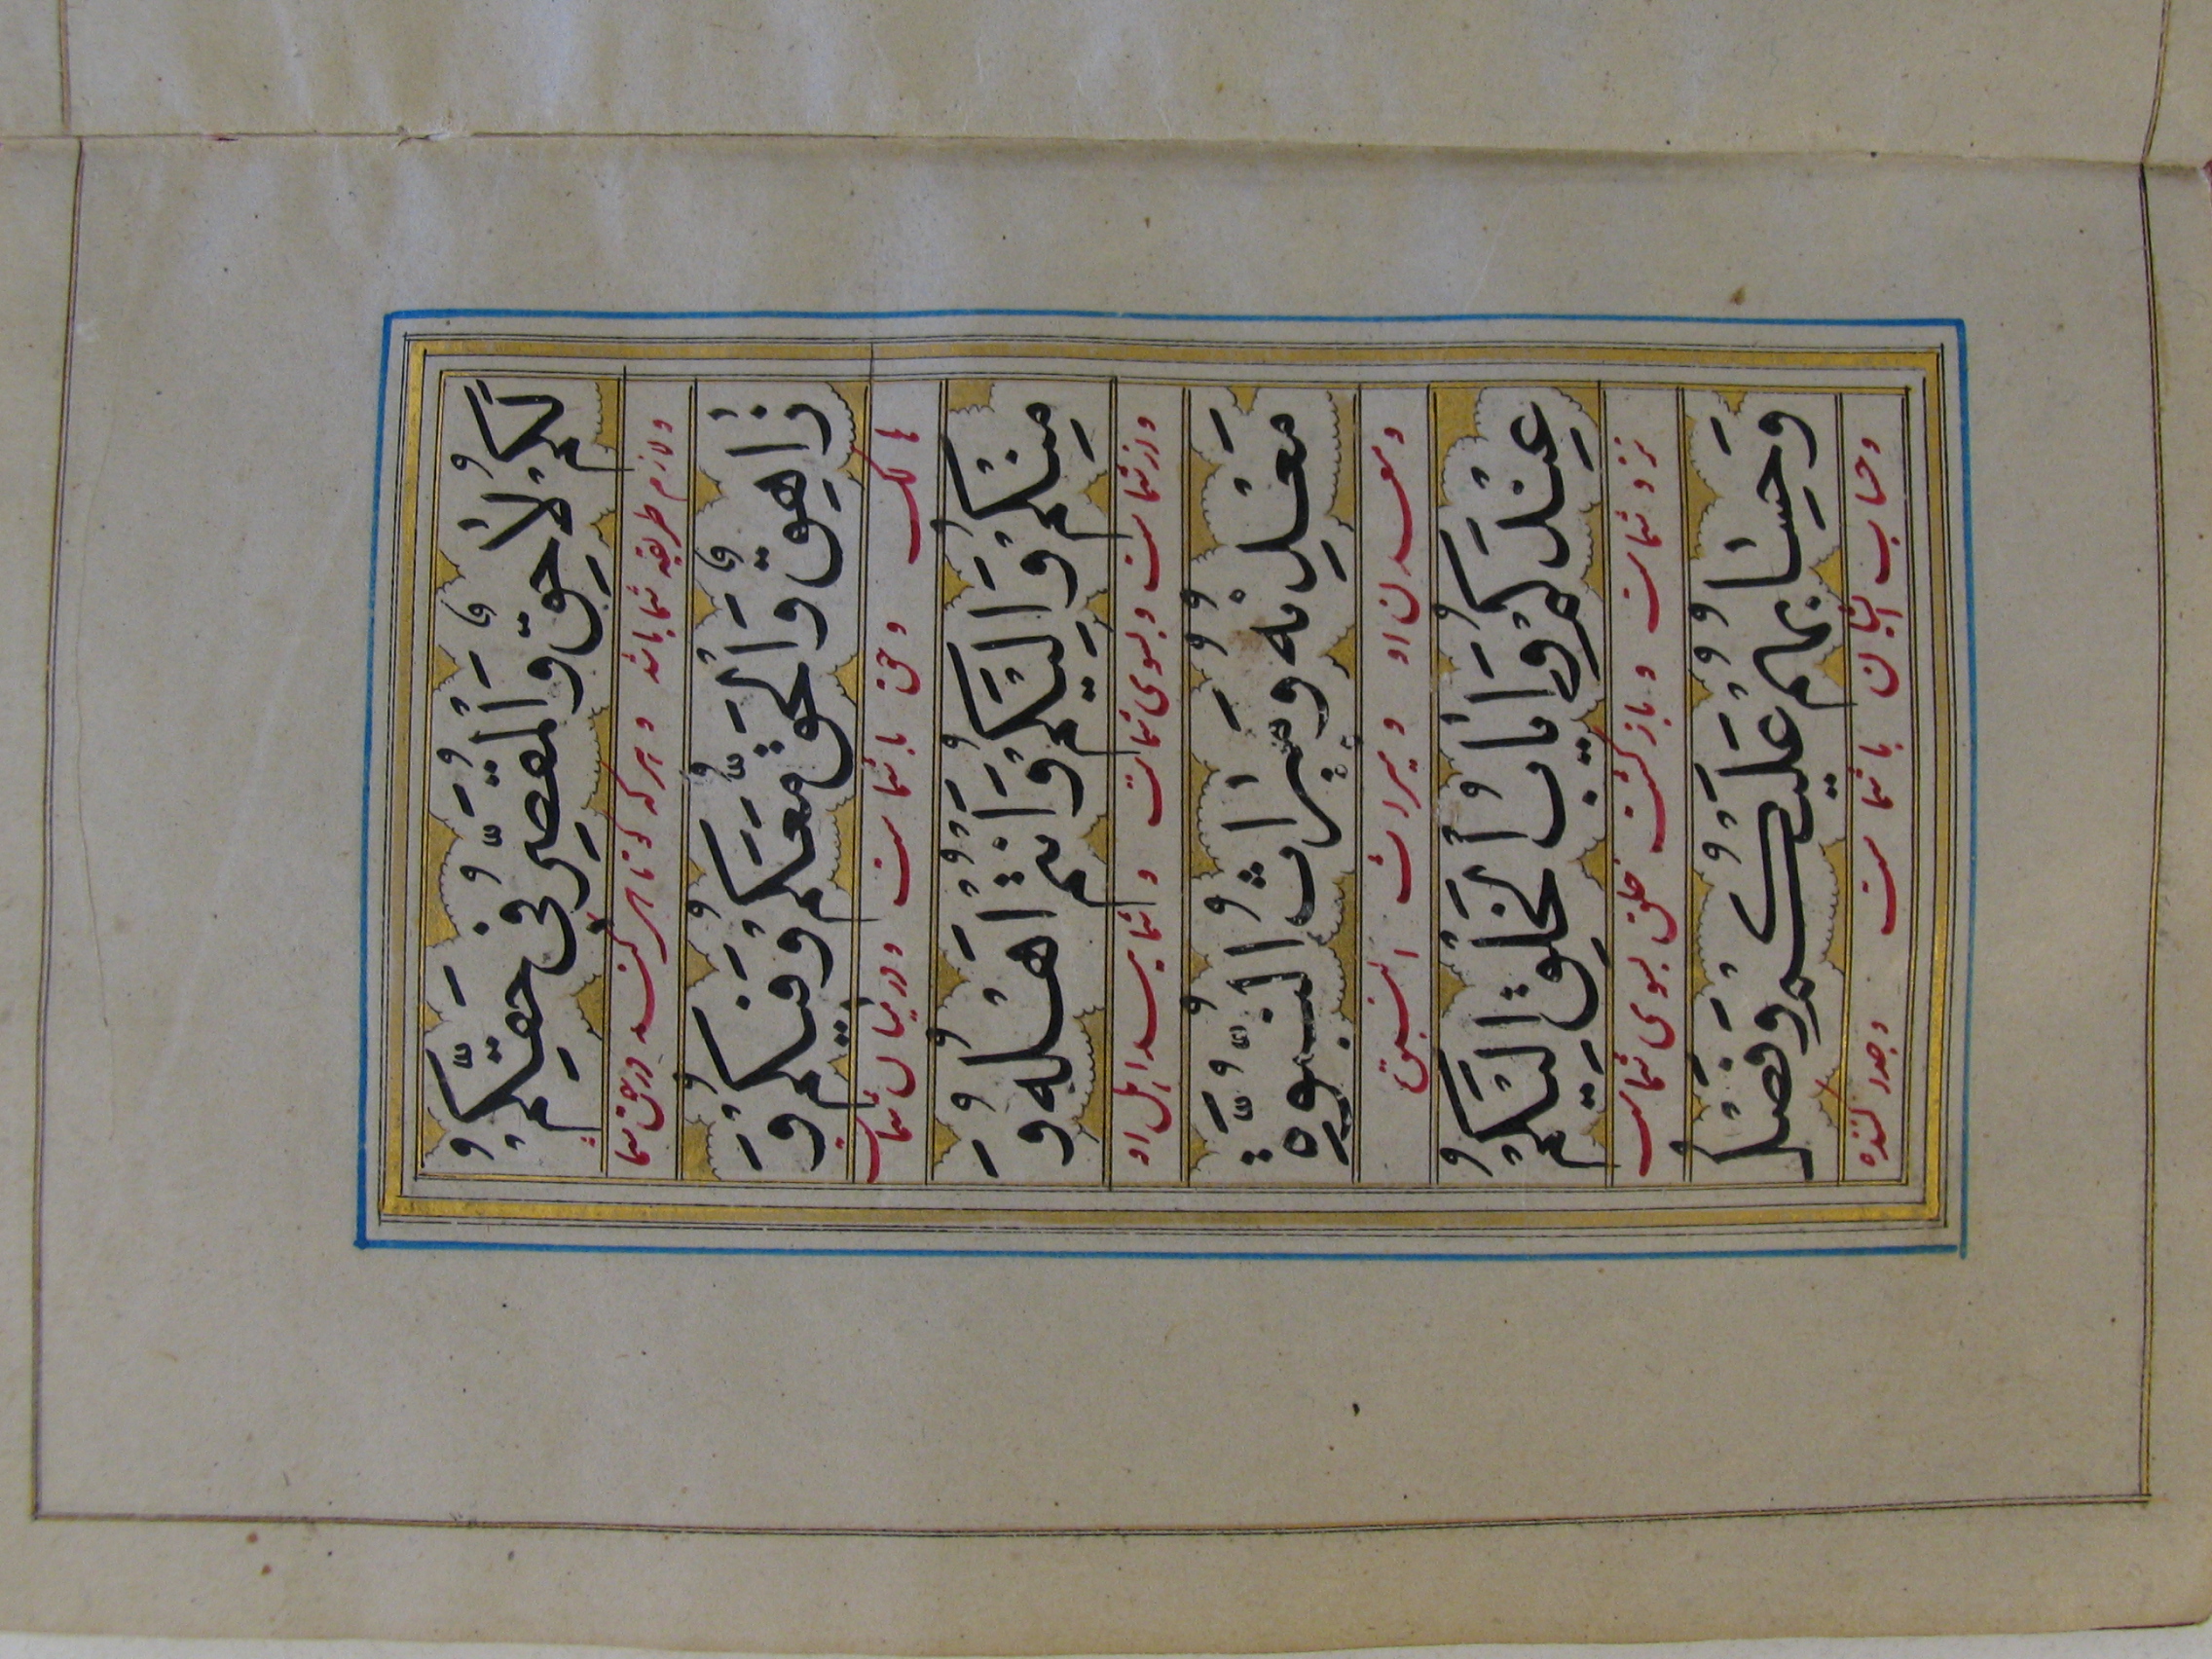 لَكُمْ لاٰحِقٌ وَالْمُقَصِّرُ فى حَقِّكُمْ
ولازم طریقه شما باشد و هر که کوتاهی کند در حق شما
زٰاهِقٌ وَالْحَقُّ مَعَكُمْ وَفيكُمْ وَ
هالک و حق با شماست و در میان شماست
مِنْكُمْ وَاِلَيْكُمْ وَاَنْتُمْ اَهْلُهُ وَ
و از شماست و بسوی شماست و شمایید اهل او
مَعْدِنُهُ وَميرٰاثُ النُّبُوَّةِ
و معدن او و میراث النبوة
عِنْدَكُمْ وَاِيٰابُ الْخَلْقِ اِلَيْكُمْ
نزد شماست و بازگشت خلق بسوی شماست
وَحِسٰابُهُمْ عَلَيْكُمْ وَفَصْلُ
و حساب ایشان با شماست و جدا کننده